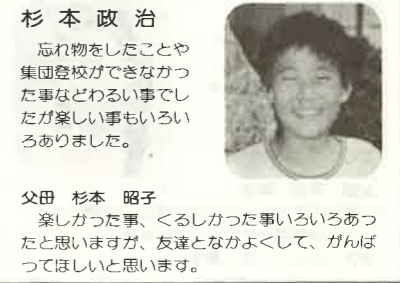 杉本政治
　忘れ物をしたことや
集団登校ができなかっ
た事などわるい事でし
たが楽しい事もいろい
ろありました。
父母　杉本　昭子
　楽しかった事、くるしかった事いろいろあっ
たと思いますが、友達となかよくして、がんば
ってほしいと思います。